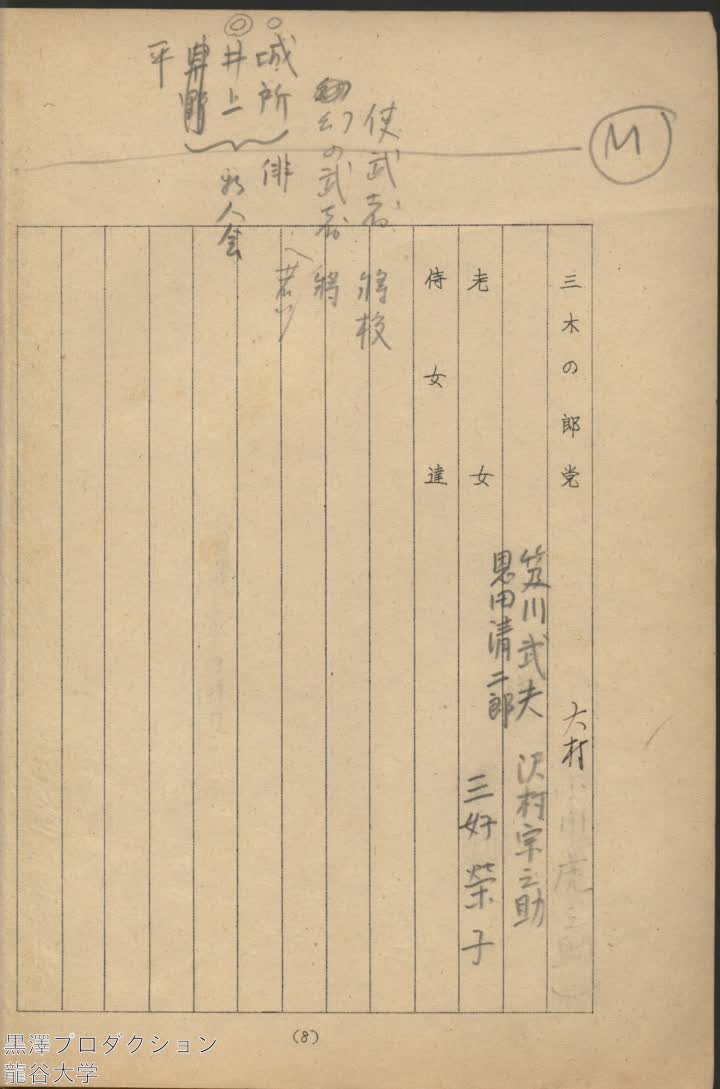 M
三木の郎党
大村
笈川武夫 沢村宗之助
恩田清二郎
老女 三好榮子
侍女達
使武者 將校
幻の武者 將
城所 俳
井上
平
(8)
黒澤プロダクション
龍谷大学